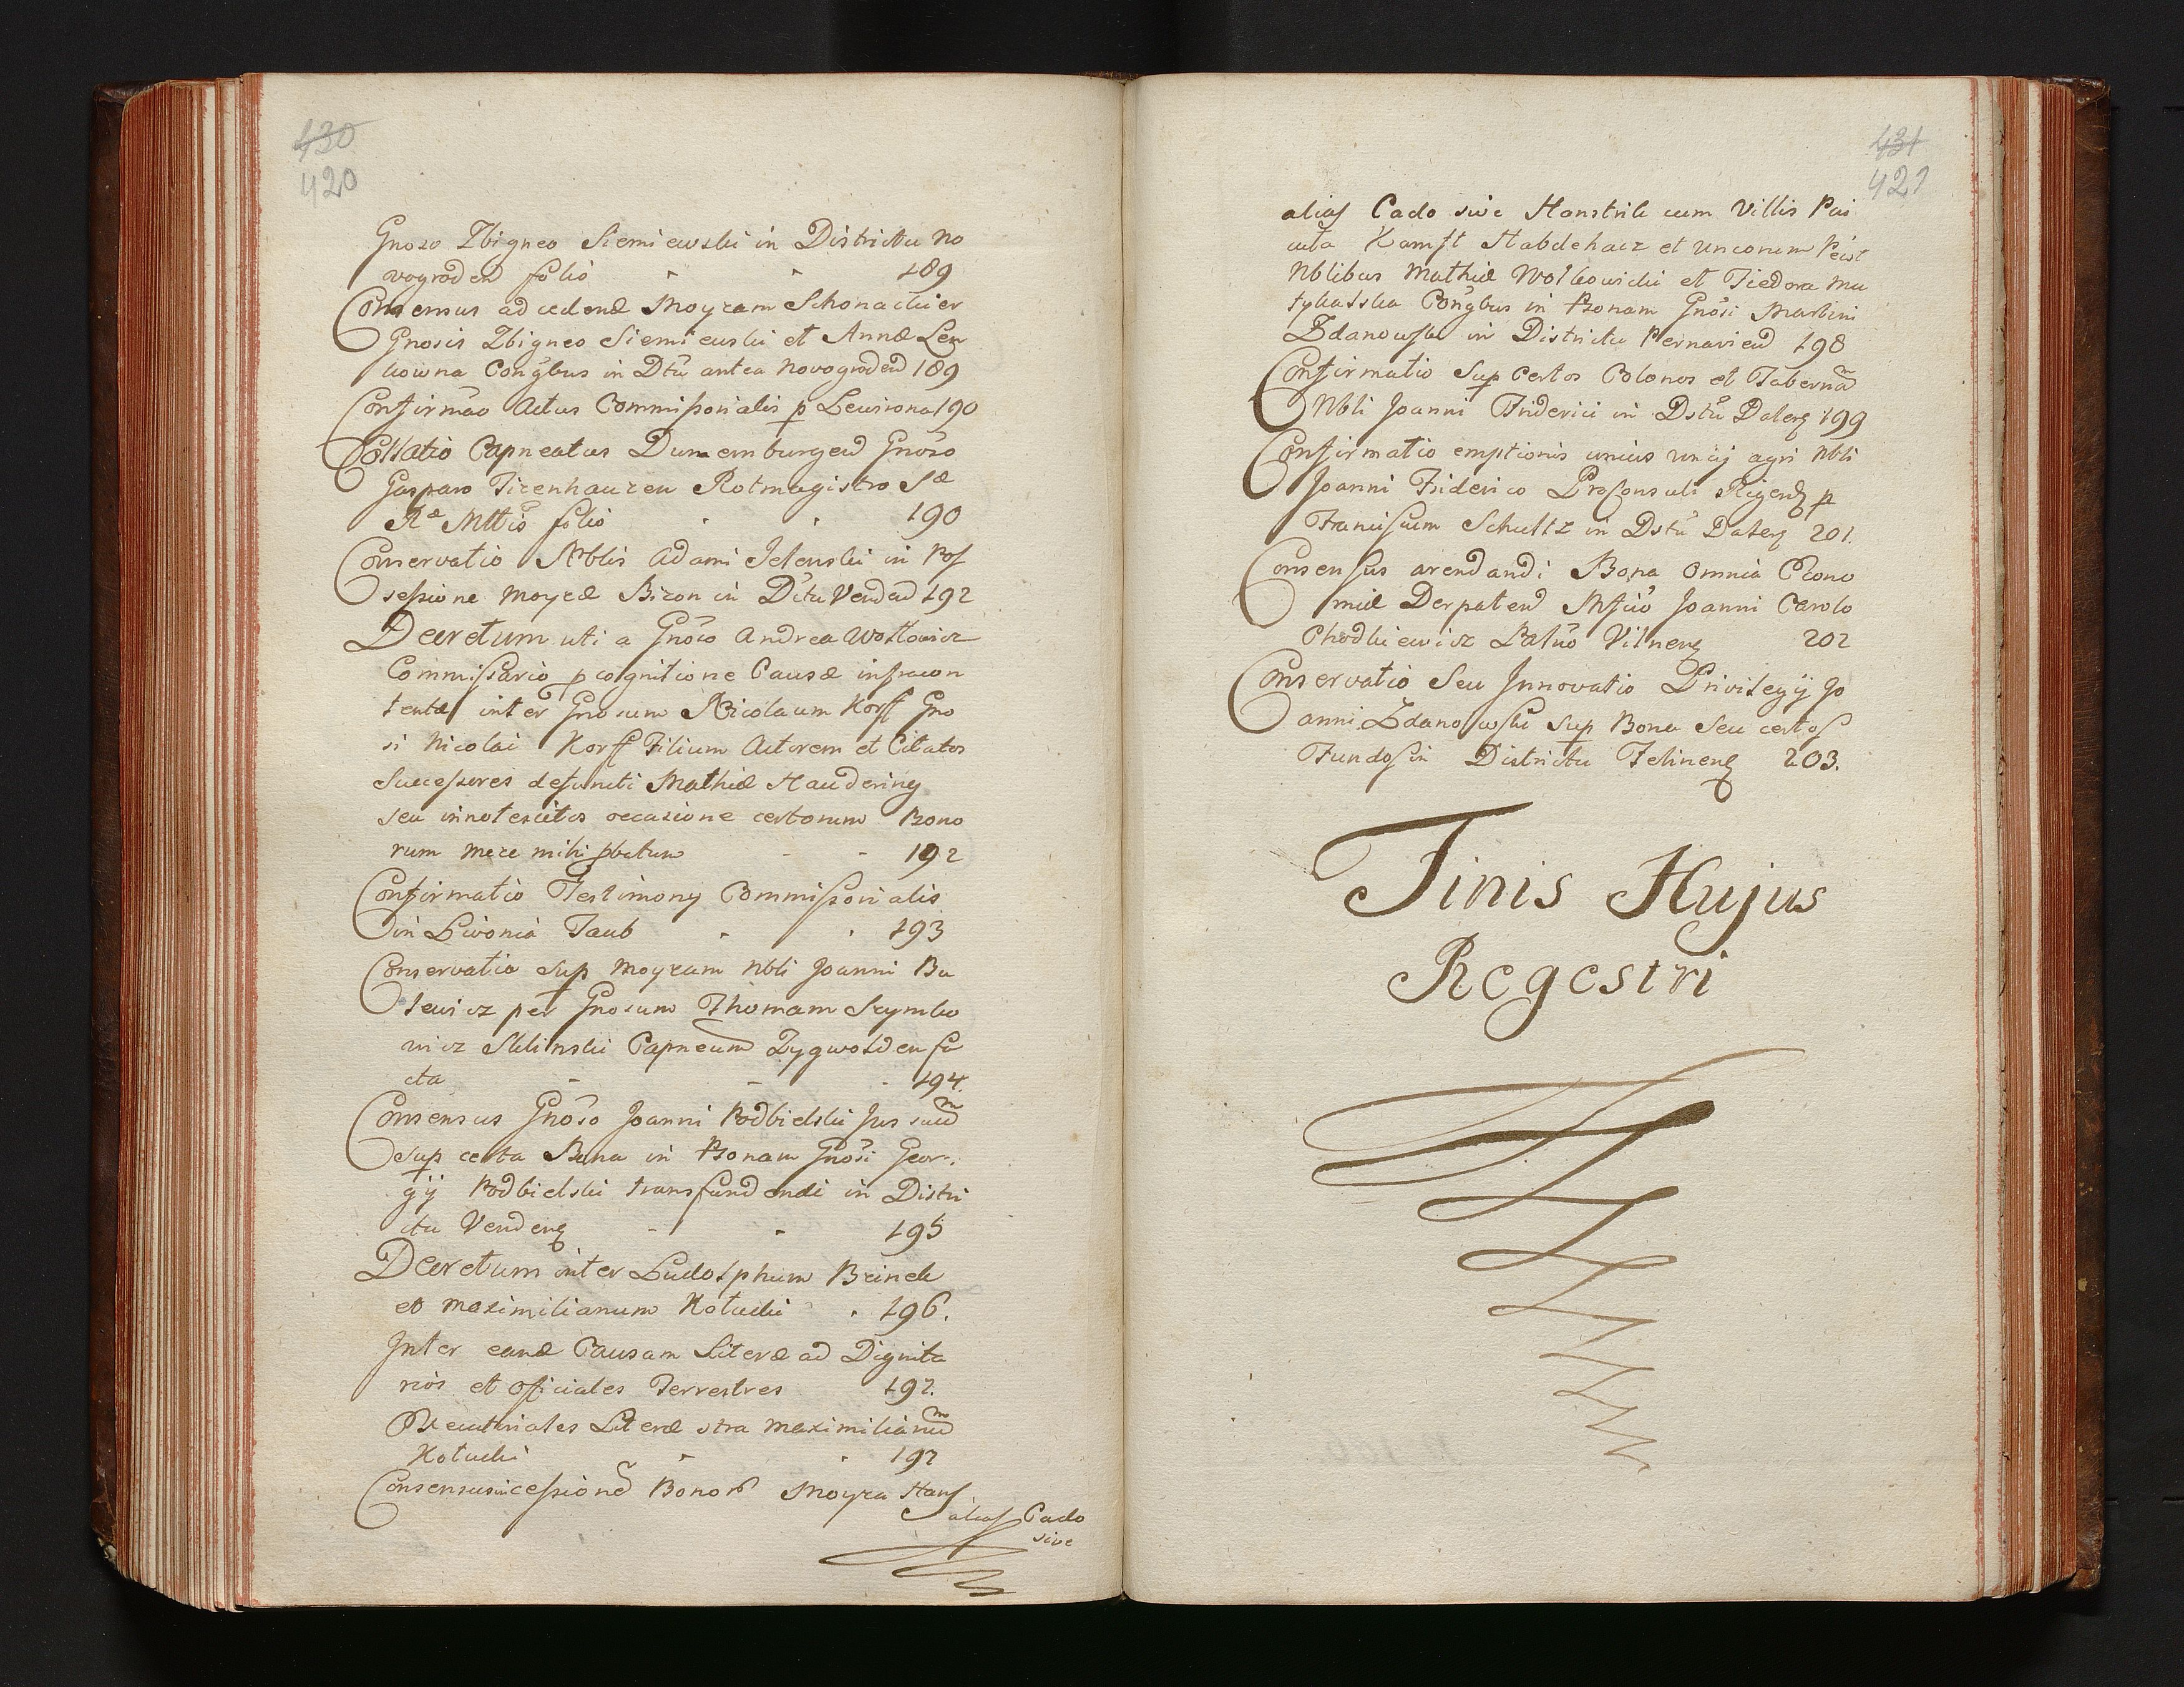 430
420
Gnoso Zbigneo Siemiewski in Districtu No
vogroden folio - - 189
Consensus ad cedend Moyzam Schonackier
Gnosis Zbigneo Siemiewski et Annæ Len
kowna Coñgbus in Dtu antea Novogroden 189
Confirmao Actus Commissorialis p Lewiona 190
Collatio Capneatus Dunemburgen Gnoso
Gasparo Tizenhauzen Rotmagistro Sæ
Ræ Mttis folio . . 190
Conservatio Nblis Adami Jelenski in Pos
sessione Moyzæ Bizon in Dctu Venden 192
Decretum uti a Gnoso Andrea Wollowicz
Commissario p cognitione Causæ infracon
tentæ inter Gnosum Nicolaum Korff Gno
si Nicolai Korff Filium Actorem et Citatos
Successores defuncti Mathiæ Haudering
seu innotescitos occasione certorum Bono
rum mere mihi pbatum - - 192
Confirmatio Testimony Commissorialis
in Livonia Taub . . 193
Conservatio sup Moyzam Nbli Joanni Bu
tewicz per Gnosum Thomam Szymko
wicz Sklinski Capneum Zygwolden fa
cta - - - 194.
Consensus Gnoso Joanni Podbielski Jus suum
sup certa Bona in Psonam Gnosi Geor-
gij Podbielski transfundendi in Distri
ctu Venden - - 195
Decretum inter Ludolphum Brinck
et Maximilianum Kotucki . 196.
Inter eand Causam Literæ ad Dignita
rios et Officiales Terrestres 197.
Executoriales Literæ ctra Maximilianum
Kotucki - . 197
Consensus in cessione Bonor Moyza Hans
alias Cado
sive
431
421
alias Cado sive Hanstrik cum Villis Pai
cuta Kamst Habdehacz et Unconem Peist
Nblibus Mathiæ Wolkowicki et Fiedora Ma
tykasska Coñgbus in Psonam Gnosi Martini
Zdanowski in Districtu Pernavien 198
Confirmatio Sup certos Colonos et Tabernam
Nbli Joanni Friderici in Dstu Dalen 199
Confirmatio emptionis unius uncij agri Nbli
Joanni Friderico ProConsuli Rigens p
Franciscum Schultz in Dstu Dalen 201.
Consensus arendandi Bona omnia Æcono
miæ Derpaten Mfico Joanni Carolo
Chodkiewicz Palno Vilnen 202
Conservatio Seu Innovatio Privilegij Jo
anni Zdanowski Sup Bona Seu certos
Fundos in Districtu Felinen 203.
Finis Hujus
Regestri